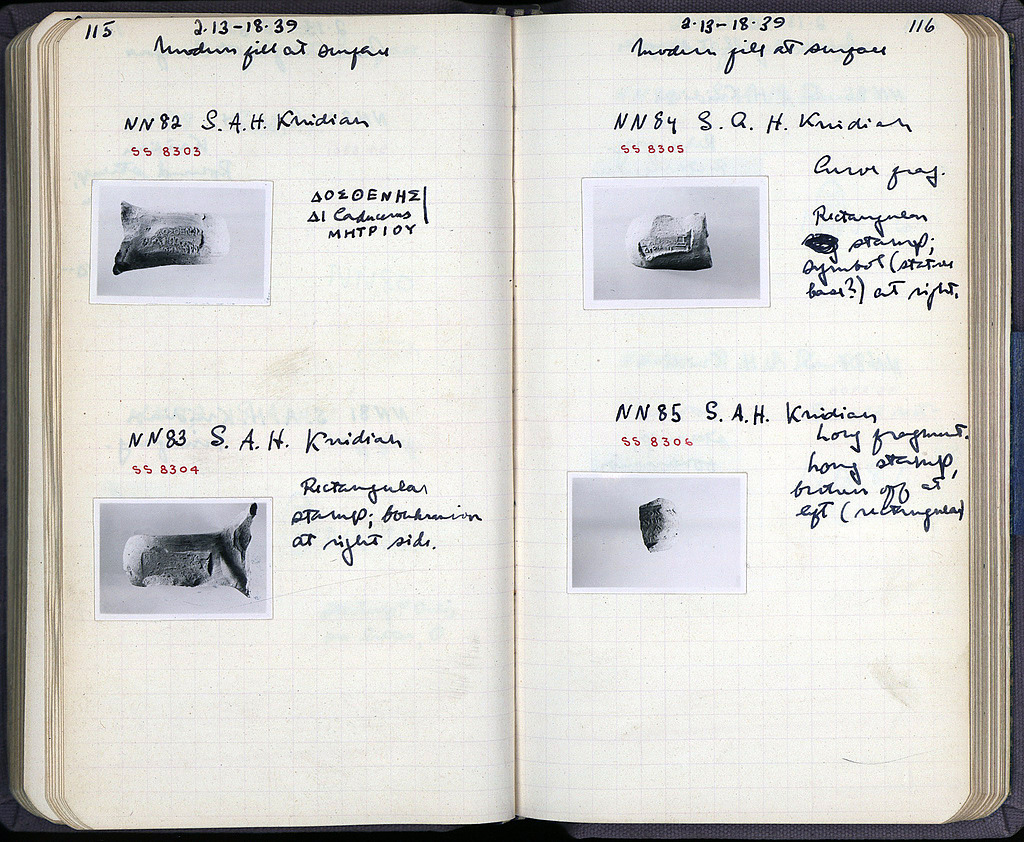 115
2·13-18·39
Modern fill at surface
NN82 S.A.H. Knidian
SS 8303
ΔΟΣΘΕΝΗΣ|
ΔΙ Caduceus
ΜΗΤΡΙΟΥ
NN83 S.A.H. Knidian
SS 8304
Rectangular
stamp; boukranion
at right side.
2·13-18·39
116
Modern fill at surface
NN84 S.A.H. Knidian
SS 8305
Curve frag.
Rectangular
stamp;
symbol (statue
base?) at right.
NN85 S.A.H. Knidian
SS 8306
Long fragment.
Long stamp,
broken off at
left (rectangular)